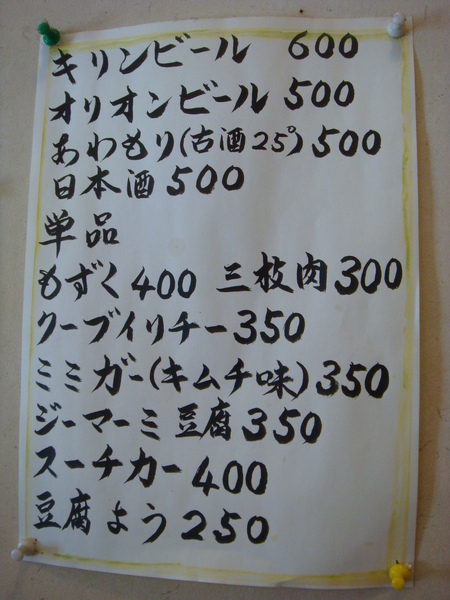 キリンビール 600
オリオンビール 500
あわもり(古酒25°) 500
日本酒 500
単品
もずく 400 三枝肉 300
クーブイリチー 350
ミミガー(キムチ味) 350
ジーマーミ豆腐 350
スーチカー 400
豆腐よう 250